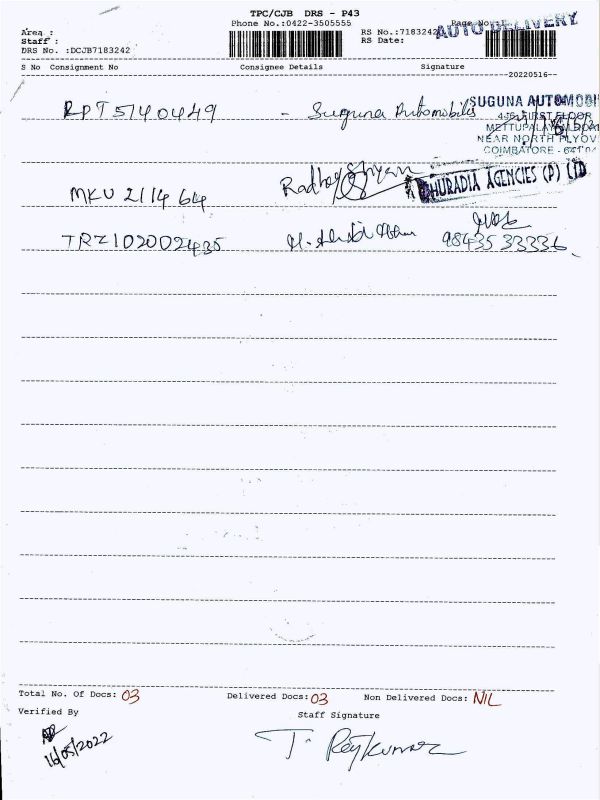 TPC/CJB DRS - P43
Phone No.:0422-3505555
Page No:1
AUTO DELIVERY
Area :
Staff :
DRS No. :DCJB7183242
RS No.:7183242
RS Date:
S No Consignment No Consignee Details Signature
--20220516--
RPT5140449 - Suguna Automobiles
SUGUNA AUTOMOBI
FIRST FLOOR
METTUPALAYAM ROAD
NEAR NORTH FLYOV
COIMBATORE - 641
MKU 211464 Radhey Shyam
DHURADIA AGENCIES (P) LTD
TRZ102002435
98435 33336
Total No. Of Docs: 03 Delivered Docs: 03 Non Delivered Docs: NIL
Verified By Staff Signature
16/05/2022
T. Rajkumar